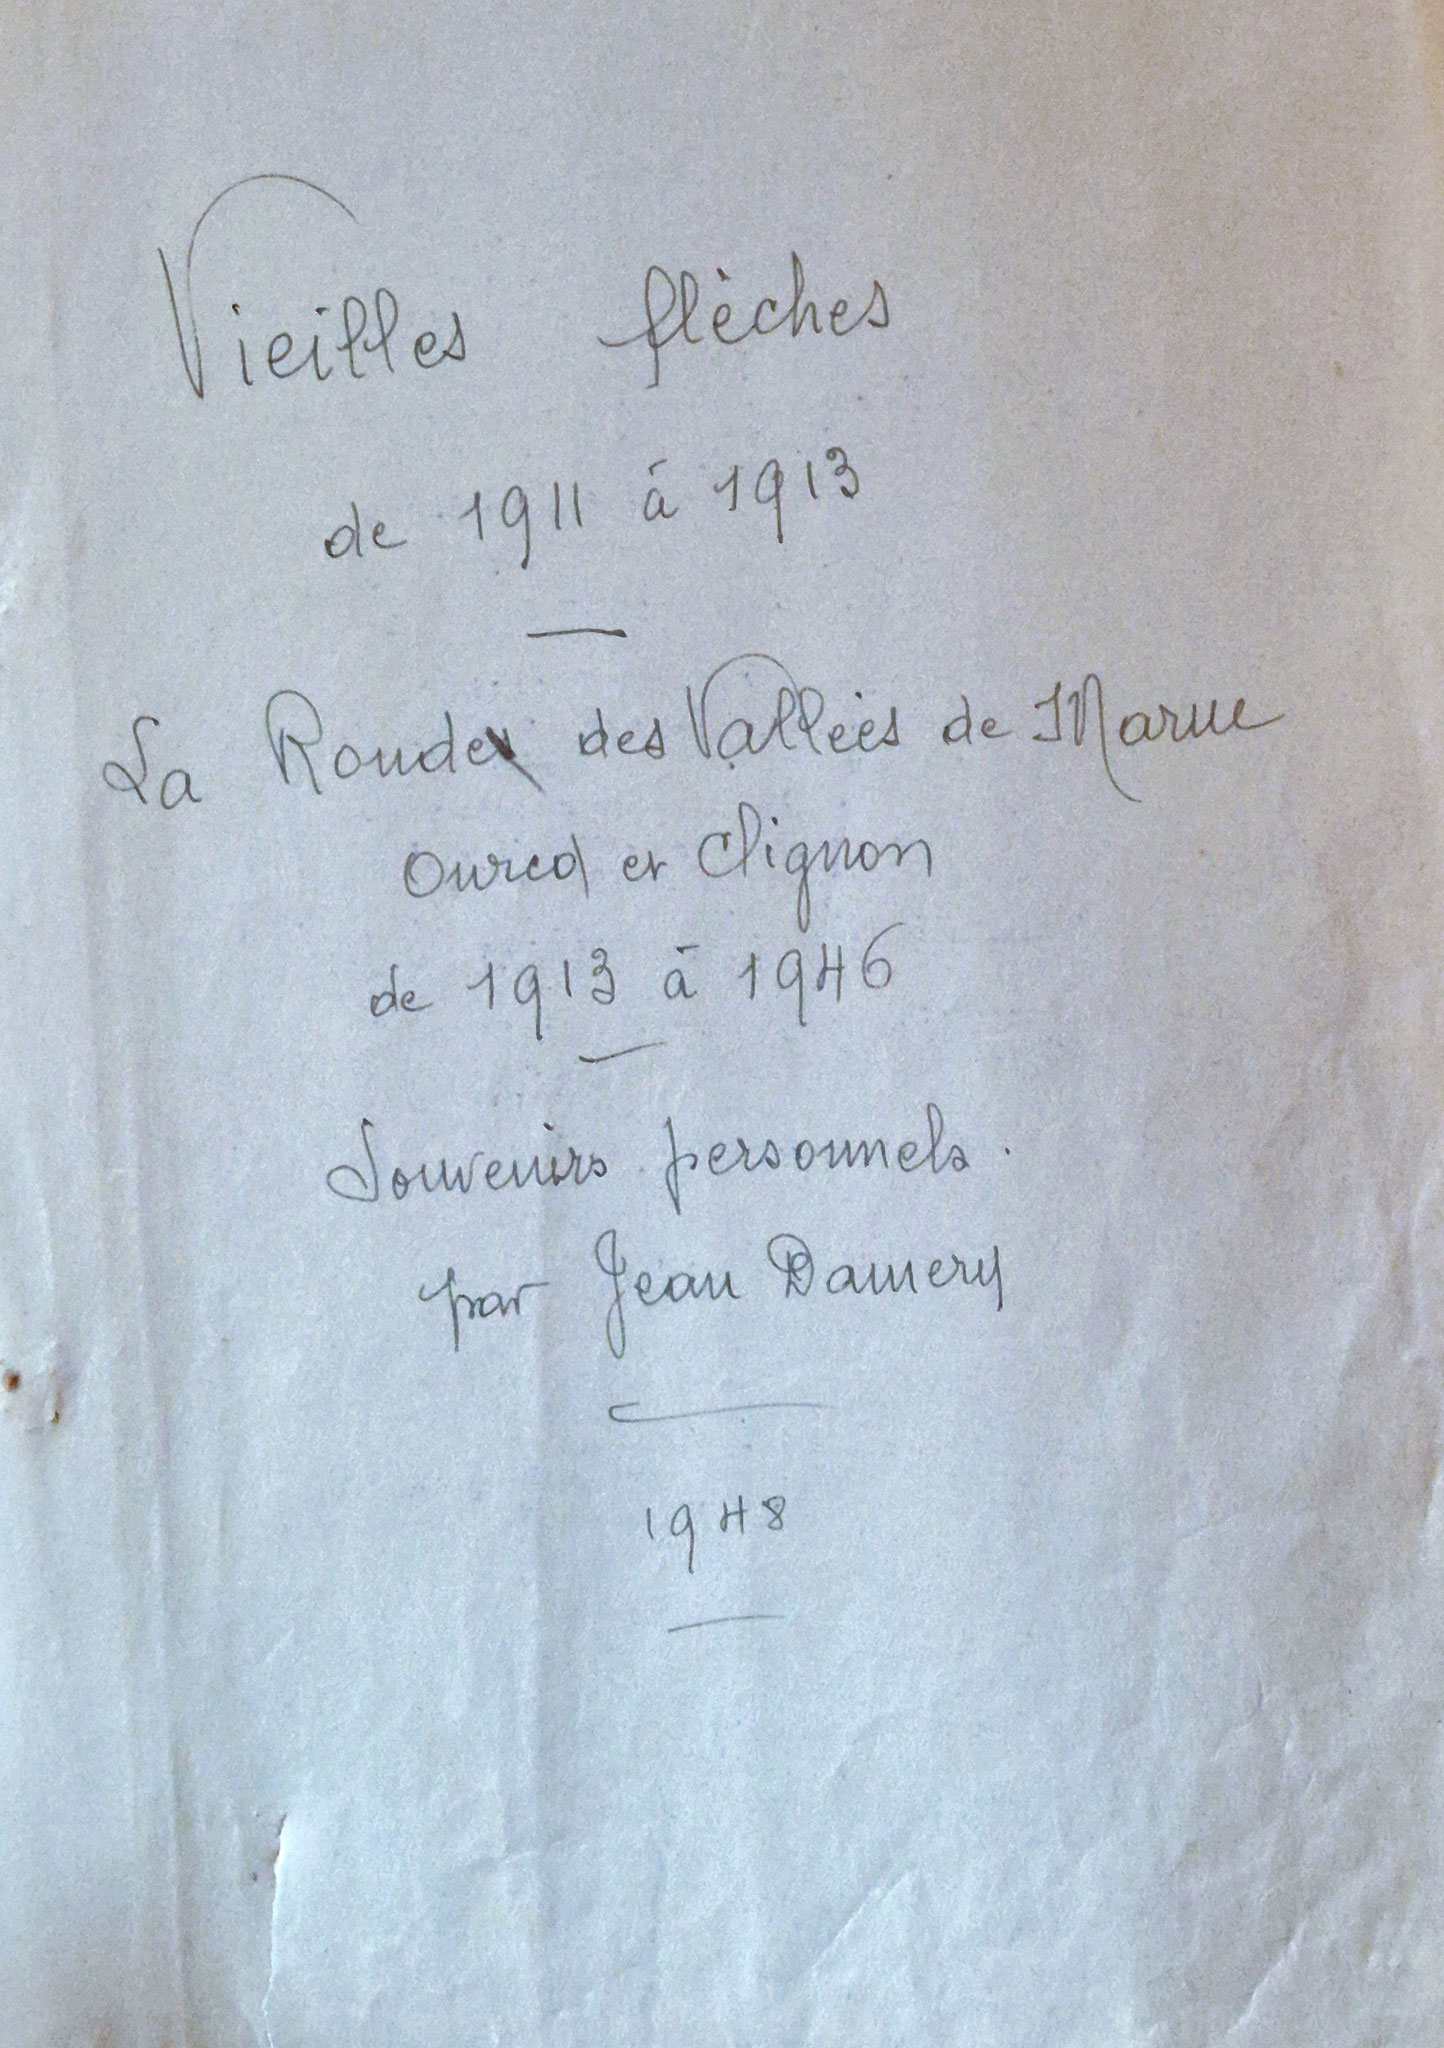 Vieilles flèches
de 1911 à 1913
La Ronde des Vallées de Marne
Ourcq et Clignon
de 1913 à 1946
Souvenirs personnels.
par Jean Damery
1948